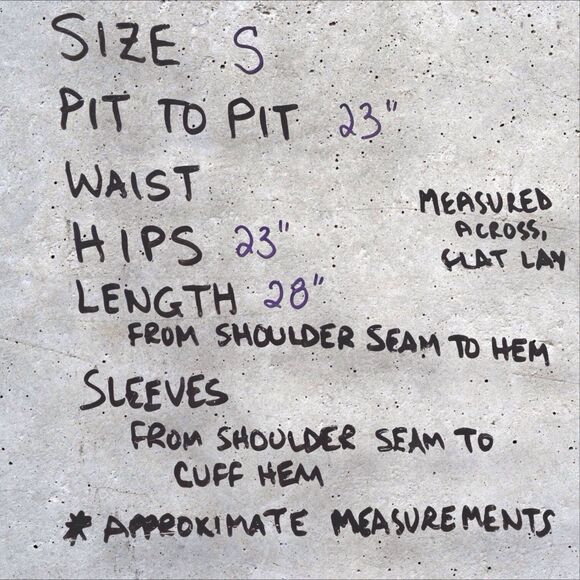 SIZE S
PIT TO PIT 23"
WAIST
HIPS 23"
MEASURED
ACROSS,
FLAT LAY
LENGTH 28"
FROM SHOULDER SEAM TO HEM
SLEEVES
FROM SHOULDER SEAM TO
CUFF HEM
* APPROXIMATE MEASUREMENTS